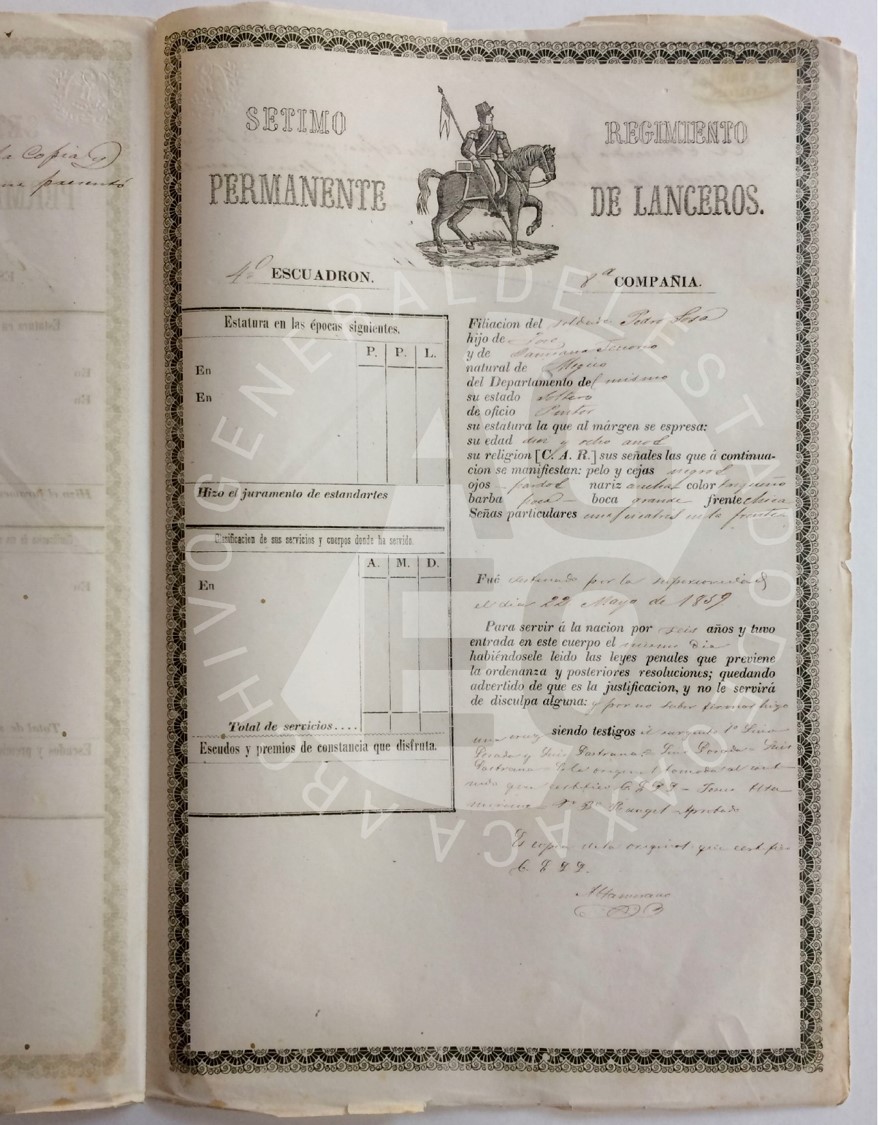 la Copia y
que presentó
SETIMO
REGIMIENTO
PERMANENTE
DE LANCEROS.
4º ESCUADRON.
8ª COMPAÑIA.
Estatura en las épocas siguientes.
P. P. L.
En
En
Hizo el juramento de estandartes
Clasificacion de sus servicios y cuerpos donde ha servido.
A. M. D.
En
Total de servicios....
Escudos y premios de constancia que disfruta.
Filiacion del soldado Pedro Sosa
hijo de José
y de
natural de Megico
del Departamento del mismo
su estado soltero
de oficio Pintor
su estatura la que al márgen se espresa:
su edad diez y ocho años
su religion [C. A. R.] sus señales las que á continua-
cion se manifiestan: pelo y cejas negros
ojos pardos nariz ancha color trigueño
barba poca boca grande frente chica
Señas particulares una cicatris en la frente
Fué destinado por la superioridad
el dia 22 Mayo de 1859
Para servir á la nacion por seis años y tuvo
entrada en este cuerpo el mismo dia
habiéndosele leido las leyes penales que previene
la ordenanza y posteriores resoluciones; quedando
advertido de que es la justificacion, y no le servirá
de disculpa alguna: y por no saber firmar hizo
una cruz siendo testigos el sargento 1º Luis
Posada y Luis Pastrana = Luis Posada = Luis
Pastrana =
que certifico C. E. D. D. =
Rangel = Aprobado
Es copia de la original que certifico
C. E. D. D.
Altamirano
ARCHIVO GENERAL DEL ESTADO DE OAXACA